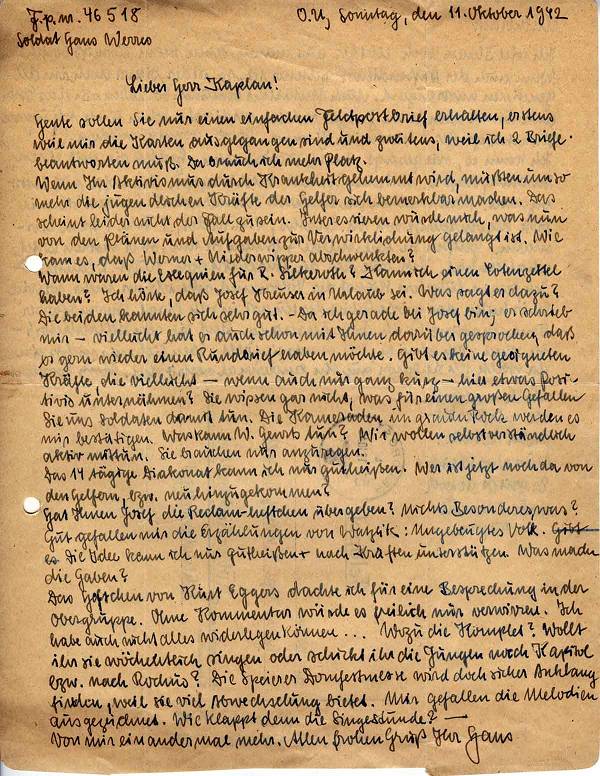 F.p.nr. 46 518
O.U., Sonntag, den 11. Oktober 1942
Soldat Hans Werres
Lieber Herr Kaplan!
Heute sollen Sie nur einen einfachen Feldpostbrief erhalten, erstens
weil mir die Karten ausgegangen sind und zweitens, weil ich 2 Briefe
beantworten muß. Da brauch ich mehr Platz.
Wenn Ihr Aktivismus durch Krankheit gehemmt wird, müßten um so
mehr die jugendlichen Kräfte der Helfer sich bemerkbar machen. Das
scheint leider nicht der Fall zu sein. Interessieren würde mich, was nun
von den Plänen und Aufgaben zur Verwirklichung gelangt ist. Wie
kam es, daß Werner + Niederwipper abschwenkten?
Wann waren die Exequien für R. Siekeroth? Kann ich einen Totenzettel
haben? Ich hörte, daß Josef Kreuser in Urlaub sei. Was sagt er dazu?
Die beiden kannten sich sehr gut. – Da ich gerade bei Josef bin; er schrieb
mir – vielleicht hat er auch schon mit Ihnen darüber gesprochen, daß
er gern wieder einen Rundbrief haben möchte. Gibt es keine geeigneten
Kräfte die vielleicht – wenn auch nur ganz kurz – hier etwas Posi-
tives unternähmen? Sie wissen gar nicht, was für einen großen Gefallen
Sie uns Soldaten damit tun. Die Kameraden im grauen Rock werden es
mir bestätigen. Was kann W. tun? Wir wollen selbstverständlich
aktiv mittun. Sie brauchen nur anzuregen.
Das 14 tägige Diakonat kann ich nur gutheißen. Wer ist jetzt noch da von
den Helfern, bzw. neu hinzugekommen?
Hat Ihnen Josef die Reclam-heftchen übergeben? Nichts Besonderes, was?
Gut gefallen mir die Erzählungen von Watzlik: Ungebeugtes Volk. Gibt
es. Die Idee kann ich nur gutheißen + nach Kräften unterstützen. Was machen
die Gaben?
Das Heftchen von Kurt Eggers dachte ich für eine Besprechung in der
Obergruppe. Ohne Kommentar würde es freilich nur verwirren. Ich
habe auch nicht alles widerlegen können ... Wozu die Komplet? Wollt
ihr sie wöchentlich singen oder schickt ihr die Jungen nach Kapitol
bzw. nach Rochus? Die Speierer Domfestmesse wird doch sicher Anklang
finden, weil sie viel Abwechselung bietet. Mir gefallen die Melodien
ausgezeichnet. Wie klappt denn die Singestunde? —
Von mir ein andermal mehr. Allen frohen Gruß Ihr Hans